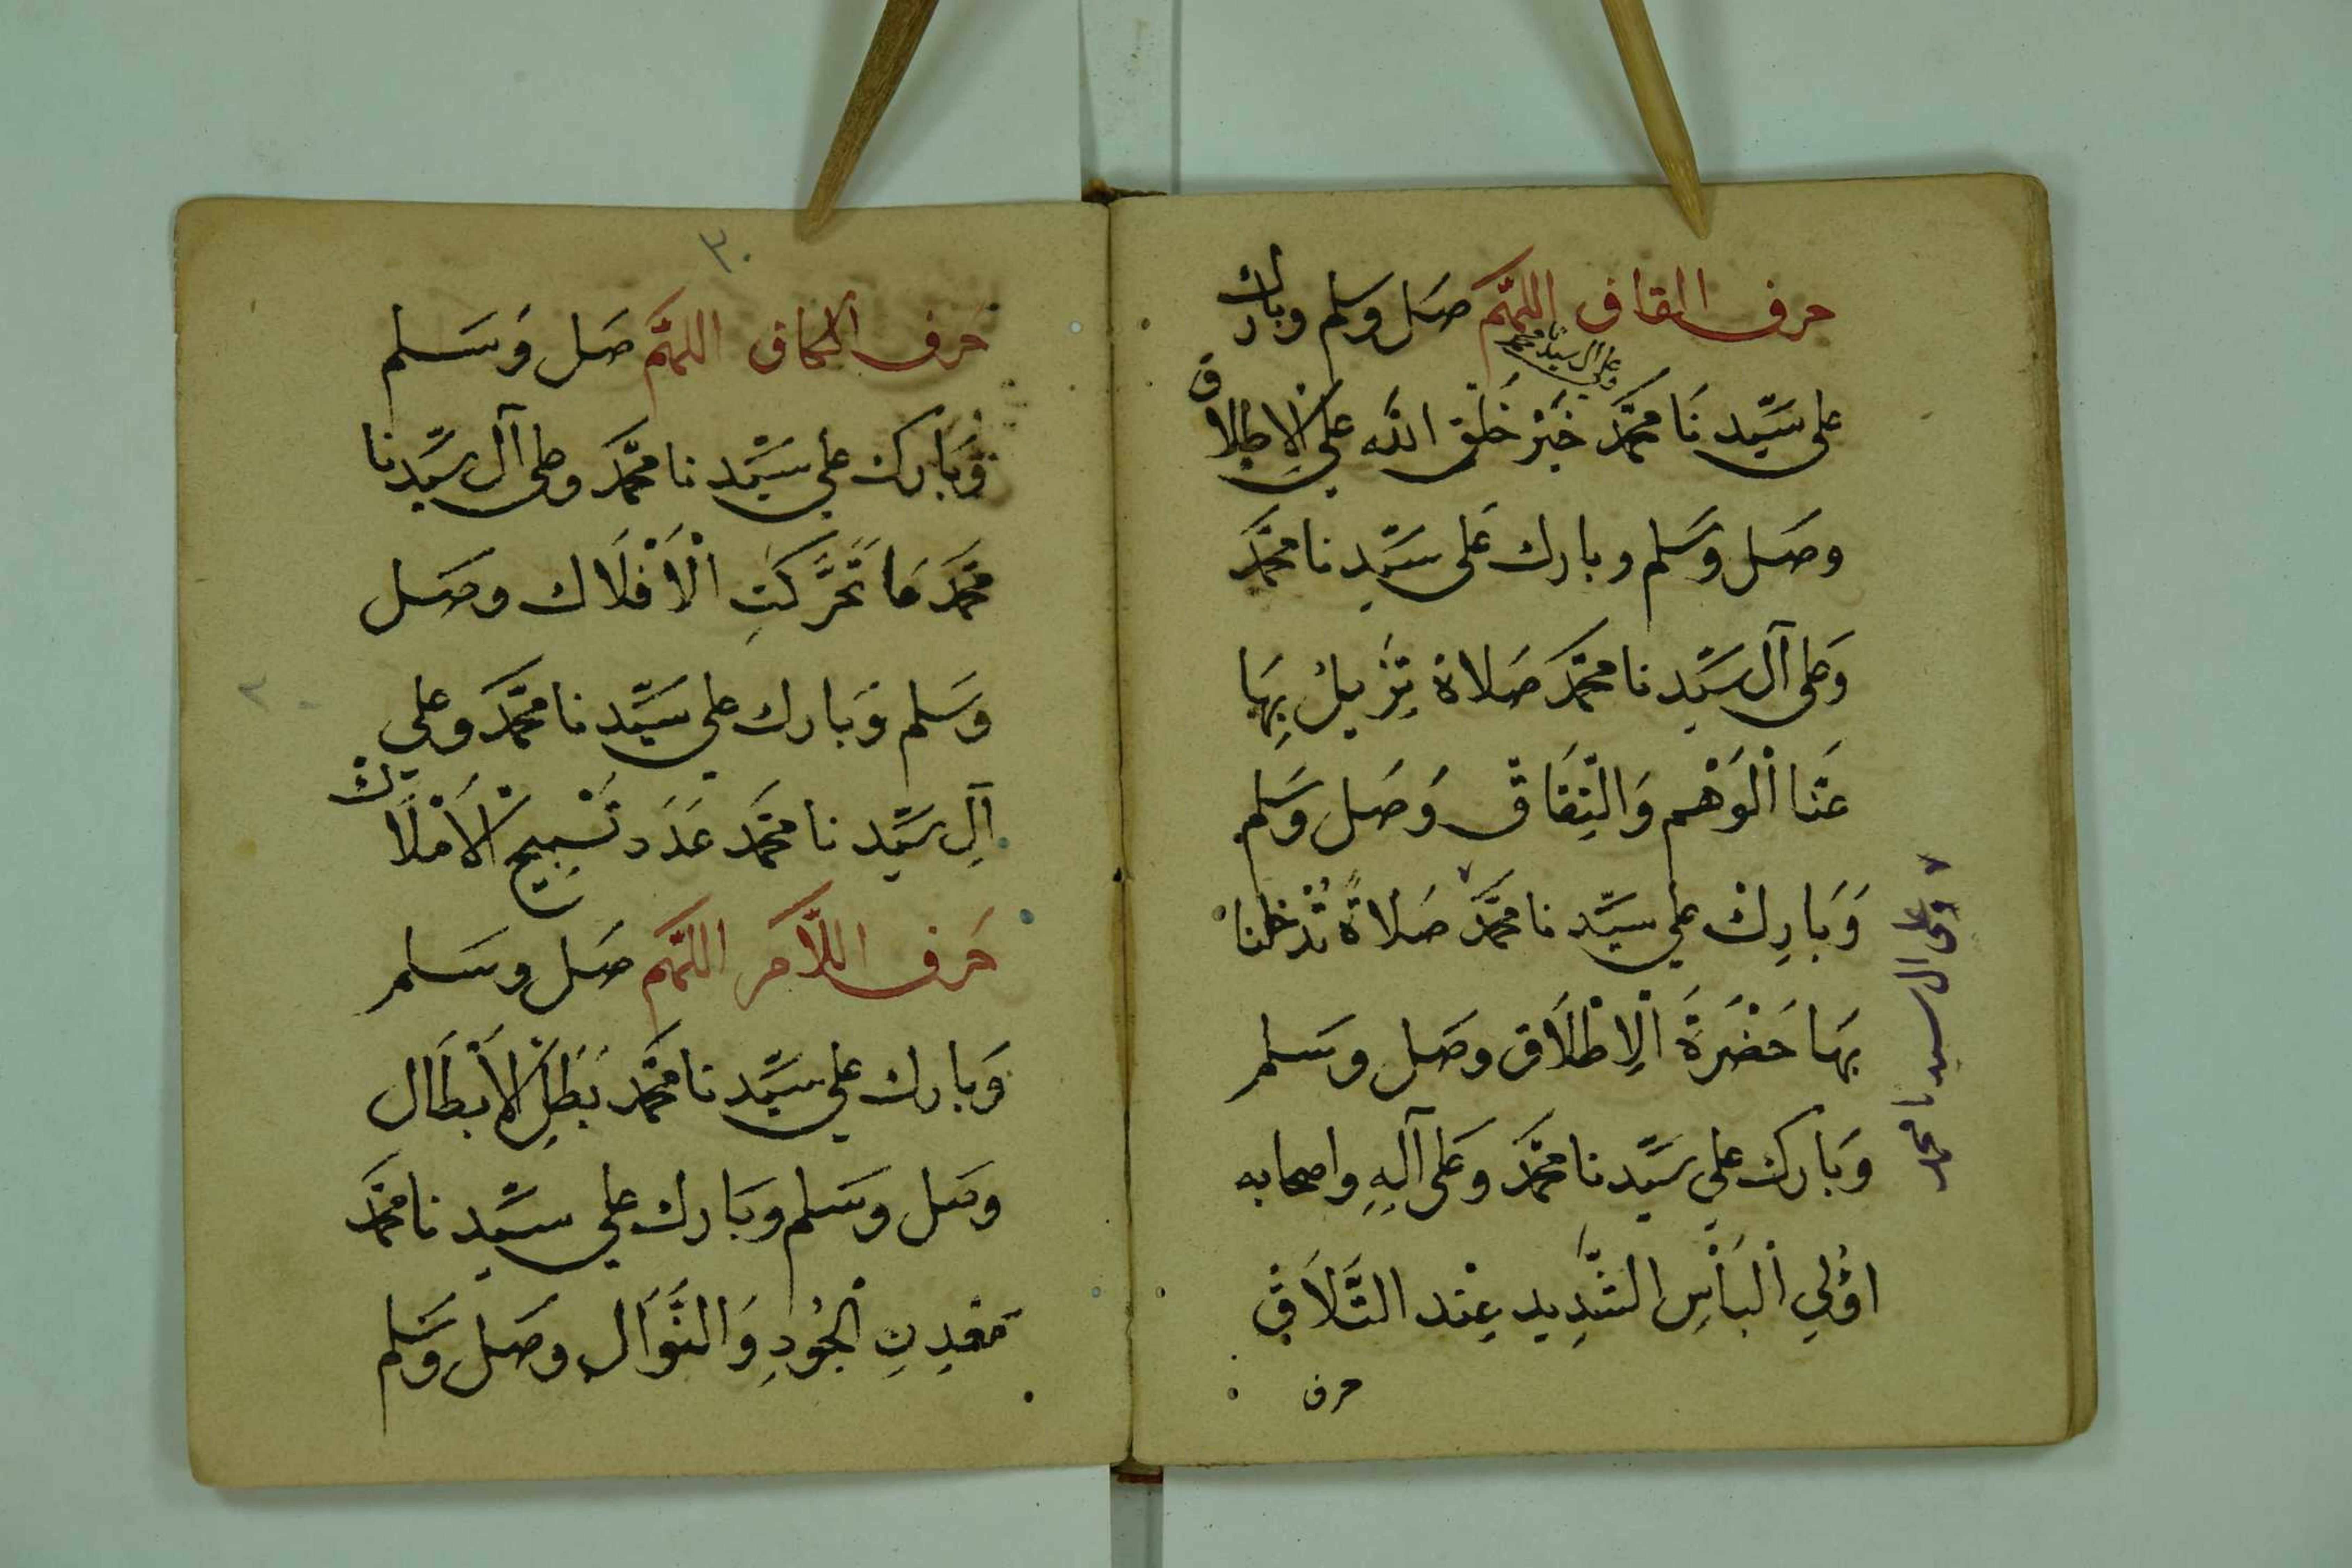 حرف القاف اللهم صل وسلم وبارك
على سيدنا محمد وعلى آل سيدنا محمد خَير خَلق الله على الإطلاق
وصَل وسَلم وبارك عَلى سَيّدِنا محمَّد
وَعلى آل سَيّدنا محمَّد صَلاة تِزيلُ بِهَا
عَنا الْوَهْم وَالنِفَاق وَصَل وَسَلم
وَبَارِكْ على سيّدنا محمَّد صَلاةً تُدْخلنا
بهَا حَضْرَةَ الْاِطْلَاق وصَل وسَلم
وَبَارك على سَيِّدنا محمَّد وَعَلى آلِهِ واصحابه
اوُلي الْبَأْسِ الشَّدِيد عِنْد التَّلَاق
حرف
وعلى ال سيدنا محمد
٣٠
حَرف الكاف اللهم صَل وَسَلم
وَبَارك على سَيّدنا محمَّد وعلى آل سَيِّدنا
محمَّد مَا تَحَرَّكَتِ الْأَفْلَاك وصَل
وَسَلم وَبَارك على سَيّدنا محمَّد وعلى
آلِ سَيّدنا محمَّد عَدَد تَسْبِيح الْأَمْلَاك
حَرف اللاَّم اللهم صَل وسَلم
وَبارك على سَيّدنا محمَّد بَطَلِ الْأَبْطَال
وصَل وسَلم وبَارك على سَيّدنا محمَّد
مَعْدِنِ الْجُودِ وَالنَّوَال وصَل وَسَلم